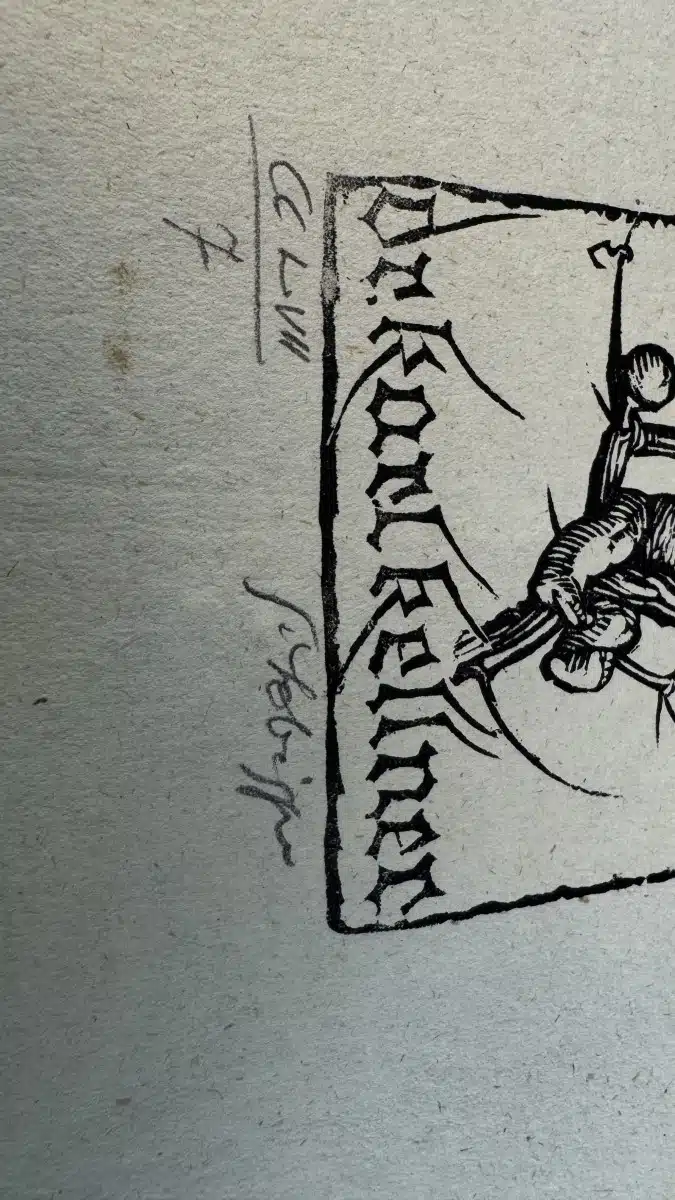 Dr. Karl Kellner
CC LVIII
7